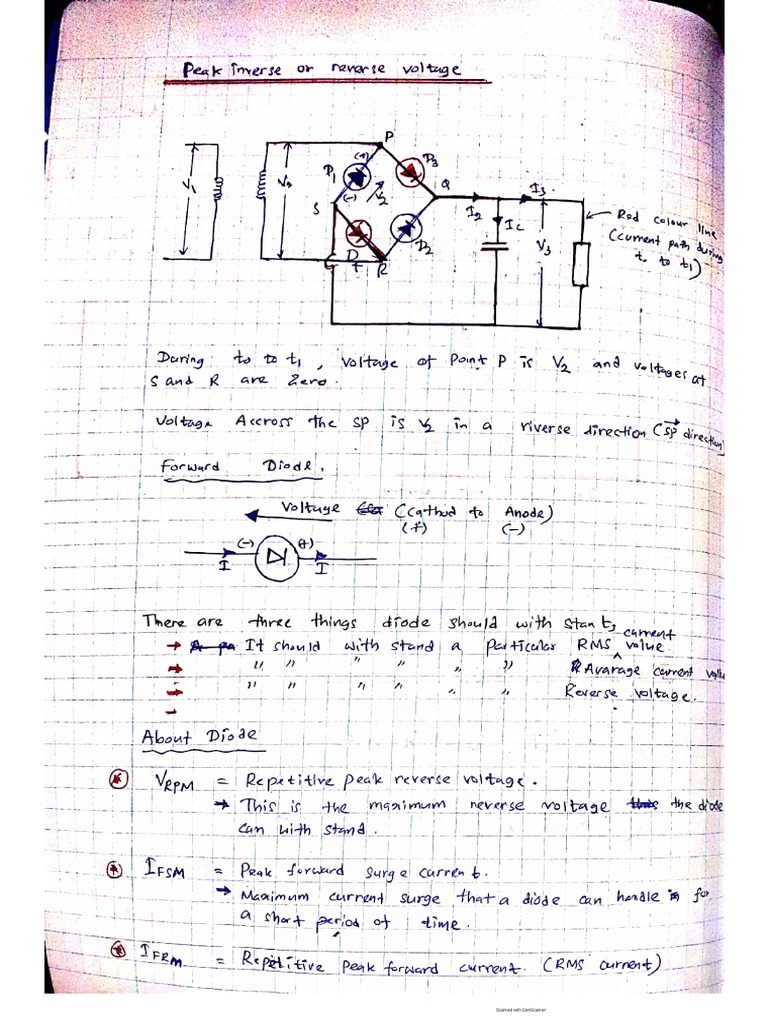 Peak inverse or reverse voltage
P
(+)
D1
D3
V1
V2
(-)
V2
Q
I3
S
I2
Ic
Red colour line
(current path during
t0 to t1)
V3
D2
R
During t0 to t1, voltage of point P is V2 and voltages at
S and R are Zero.
Voltage Accross the SP is V2 in a riverse direction (SP direction)
Forward Diode.
Voltage (Cathod to Anode)
(+) (-)
(-) (+)
I I
There are three things diode should with stant,
current
→ It should with stand a particular RMS value.
→ " " " " " " Avarage current value
→ " " " " " " Reverse voltage.
→
About Diode
* VRPM = Repetitive peak reverse voltage.
→ This is the maximum reverse voltage the diode
can with stand.
* IFSM = Peak forward surge current.
→ Maximum current surge that a diode can handle for
a short period of time.
* IFRM = Repetitive peak forward current. (RMS current)
Scanned with CamScanner